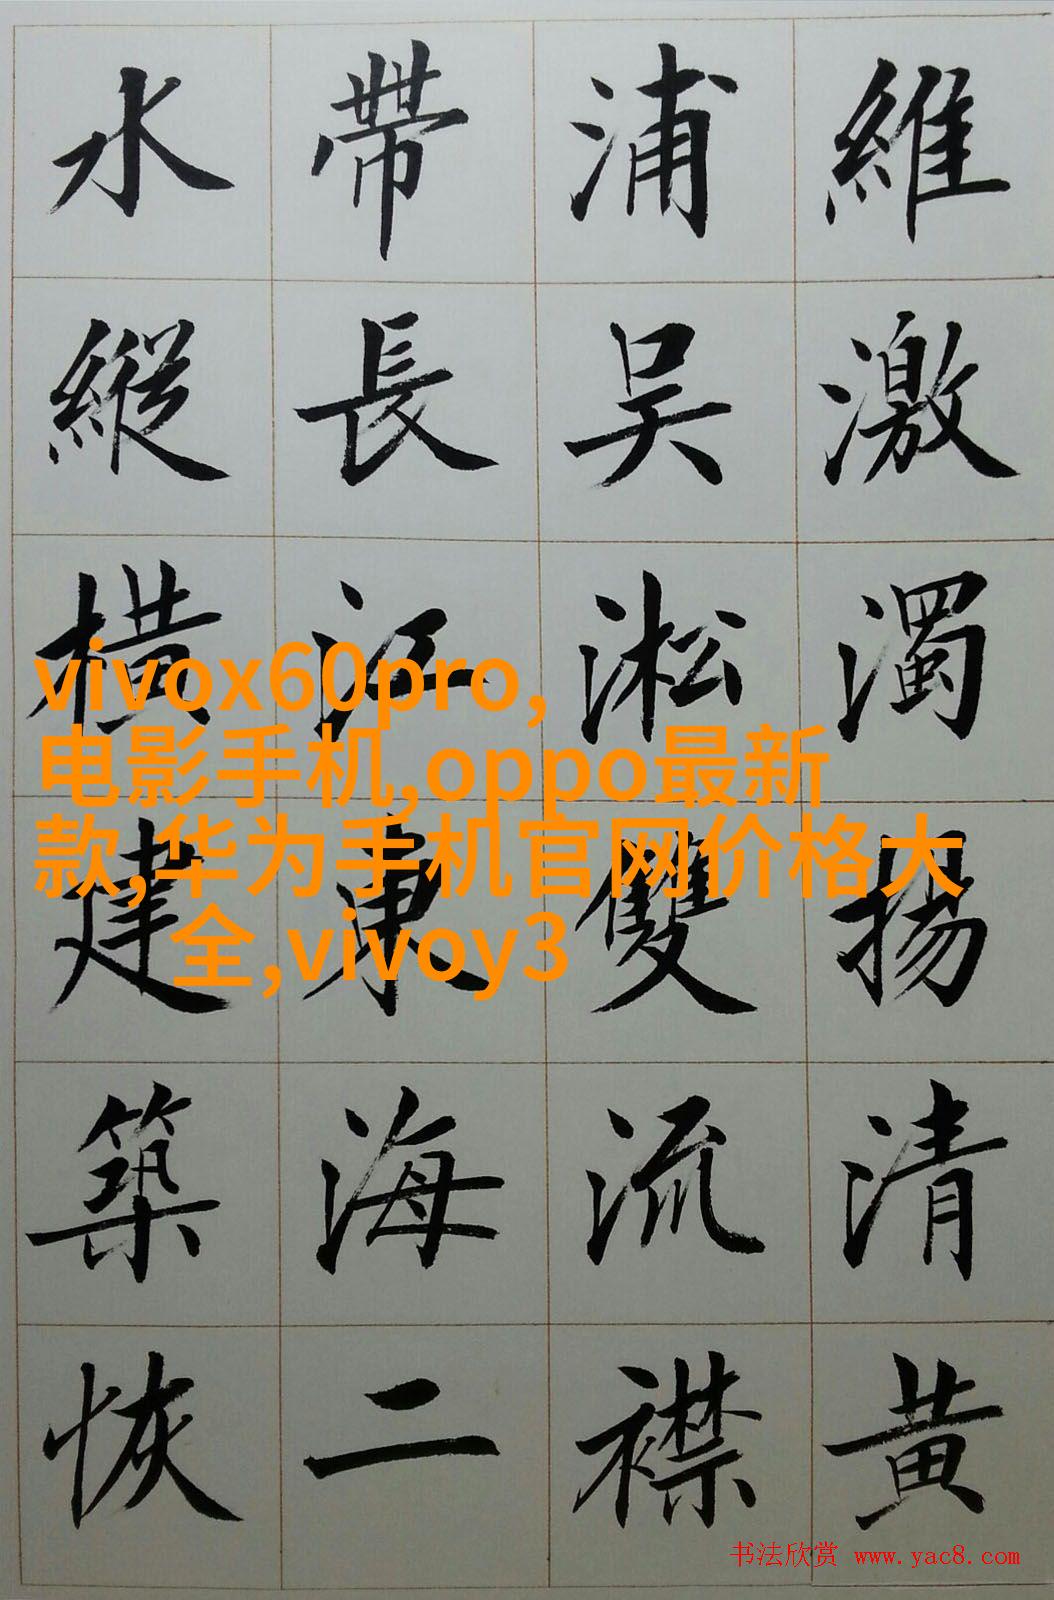 維激濁揚清黄
浦吴淞雙流襟
帶長江東海二
水縱橫建築恢
vivox60pro,
电影手机,oppo最新
款,华为手机官网价格大
全,vivoy3
书法欣赏 www.yac8.com